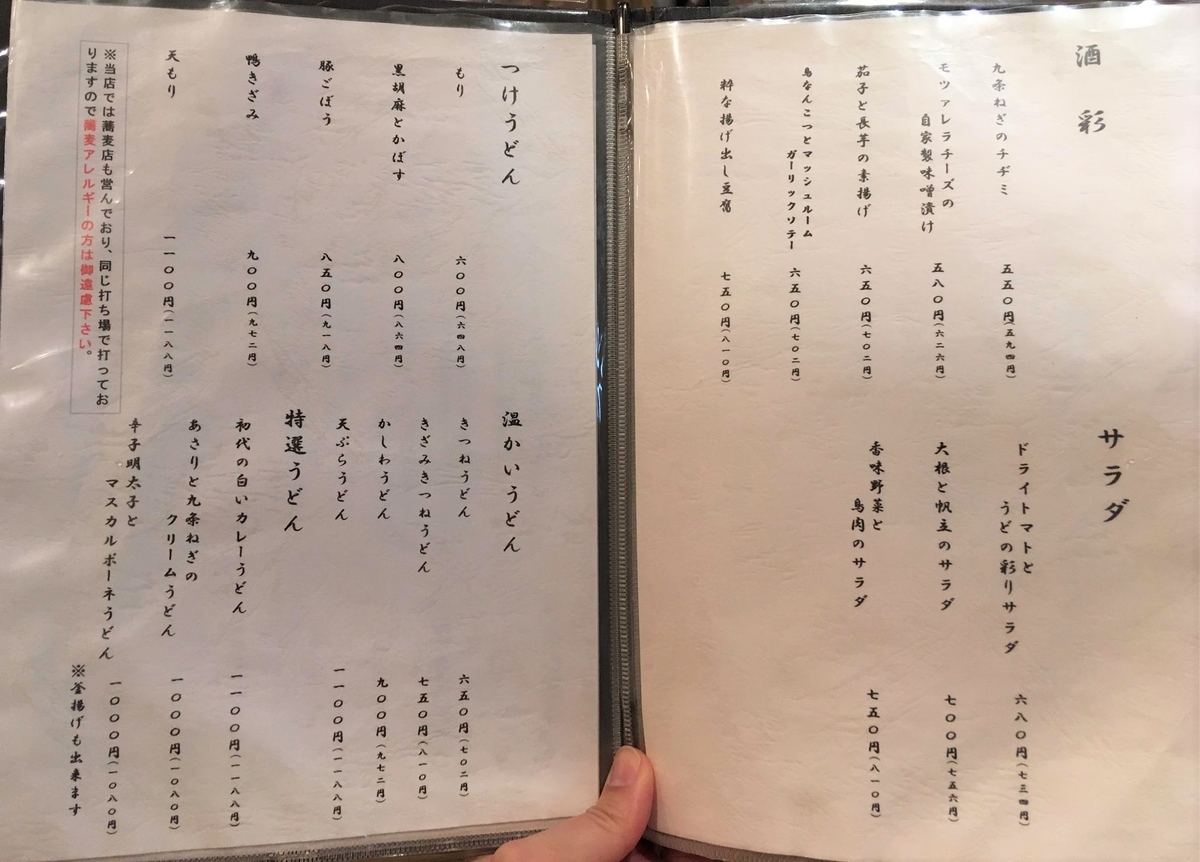 酒彩
九条ねぎのチヂミ 五五〇円(五九四円)
モッァレラチーズの
自家製味噌漬け 五八〇円(六二六円)
茄子と長芋の素揚げ 六五〇円(七〇二円)
鳥なんこつとマッシュルーム
ガーリックソテー 六五〇円(七〇二円)
粋な揚げ出し豆腐 七五〇円(八一〇円)
サラダ
ドライトマトと
うどの彩りサラダ 六八〇円(七三四円)
大根と帆立のサラダ 七〇〇円(七五六円)
香味野菜と
鳥肉のサラダ 七五〇円(八一〇円)
つけうどん
もり 六〇〇円(六四八円)
黒胡麻とかぼす 八〇〇円(八六四円)
豚ごぼう 八五〇円(九一八円)
鴨きざみ 九〇〇円(九七二円)
天もり 一一〇〇円(一一八八円)
※当店では蕎麦店も営んでおり、同じ打ち場で打ってお
りますので蕎麦アレルギーの方は御遠慮下さい。
温かいうどん
きつねうどん 六五〇円(七〇二円)
きざみきつねうどん 七五〇円(八一〇円)
かしわうどん 九〇〇円(九七二円)
天ぷらうどん 一一〇〇円(一一八八円)
特選うどん
初代の白いカレーうどん 一一〇〇円(一一八八円)
あさりと九条ねぎの
クリームうどん 一〇〇〇円(一〇八〇円)
辛子明太子と
マスカルポーネうどん 一〇〇〇円(一〇八〇円)
※釜揚げも出来ます